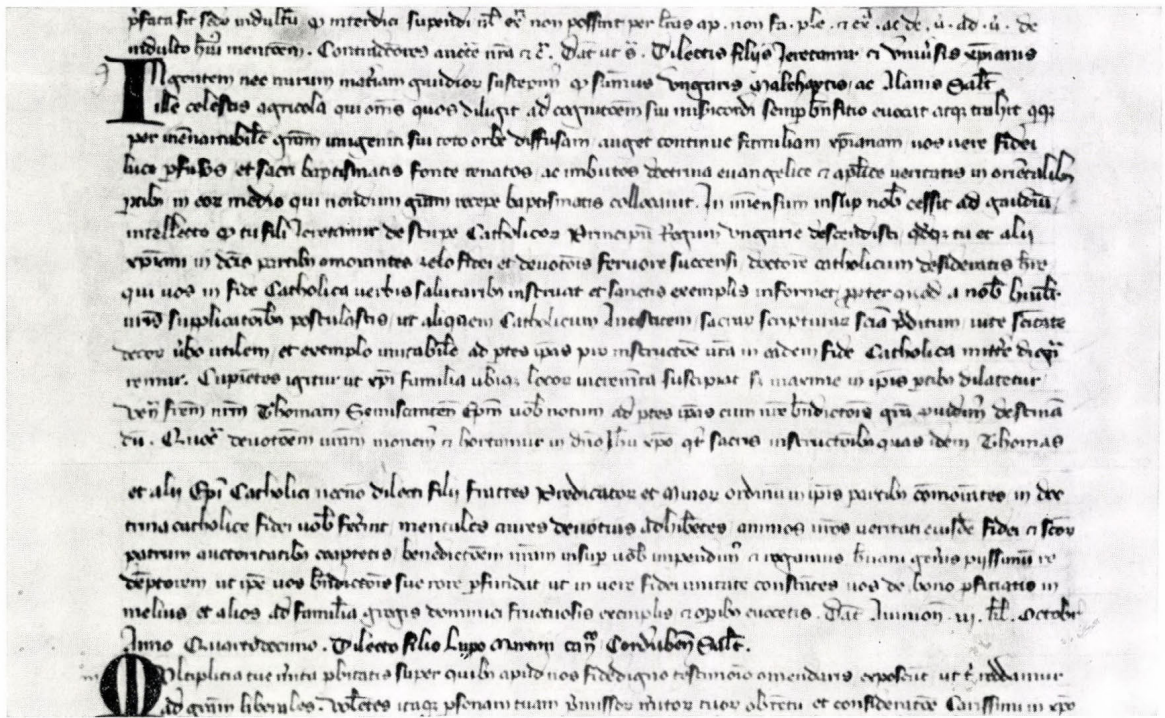 p̄fata sit sedᵒ indultū ꝙ interdici suspendi ul̄ exᶜ non possint per l̄ras ap. non fa. ple. ⁊ exᵖ. ac de. ū. ad ū. de
indulto hm̄oi mentōem. Contradictores aucte nr̄a ⁊ ē. Dat̄ ut s̄. Dilectis filijs Jeretanno ⁊ vniūsis xp̄ianis
INgentem nec mirum mat̄iam gaudior suscepim̄ ꝙ sumus vngaris Malchaytis ac Alanis Sal̄t
ille celestis agricola qui om̄is quos diligit ad cognitōem sui misericordi semp bn̄fitio euocat atq trahit qq
per inenarrabilē gr̄am unigeniti sui toto orbe diffusam auget continue familiam xp̄ianam vos vere fidei
luce pfusos et sacri baptismatis fonte renatos ac imbutos doctrina euangelice ⁊ apl̄ice veritatis in orientalib
ptib in cor medio qui nondum gr̄am recepe baptismatis collocauit. In inmensum insup nob cessit ad gaudiū
intellecto ꝙ tu fili Jeretanne de stirpe Catholicor Principū Regum vngarie descendisti qdq tu et alij
xp̄iani in dc̄is partib om̄orantes zelo fidei et deuotōis feruore succensi doctorē catholicum desideratis h̄re
qui vos in fide Catholica verbis salutarib instruat et sanctis exemplis informet ppter quod a nob humil
uīs supplicatōib postulastis ut aliquem Catholicum Antistitem sacrar scripturar scīa p̄ditum vite sc̄itate
decor ūbo utilem et exemplo imitabilē ad ptes ip̄as pro instructōe vr̄a in eadem fide Catholica mittē dig
remur. Cupiētes igitur ut xp̄i familia ubiq locor incremēta suscipiat s̄ maxime in ip̄is ptib dilatetur
Ven̄ frēm nr̄m Thomam Semiscanteń Ep̄m vob notum ad ptes ip̄as cum nr̄e bn̄dictōis gr̄a puidim̄ destina
dū. Quocˉ deuotōem vr̄am monem̄ ⁊ hortamur in dn̄o ih̄u xp̄o qt̄ sacris instructōib quas idem Thomas
et alij Ep̄i Catholici necnō dilecti filij fratres Predicator et Minor ordinū in ip̄is partib cōmorātes in doc
trina catholice fidei vob fec̄int mentales aures deuotius adhibētes animos vr̄os veritati eiusdē fidei ⁊ sc̄or
patrum auctoritatib coaptetis benedictōem nr̄am insup vob inpendim̄ ⁊ rogamus hūani gen̄is pijssimū re
dēptorem ut ip̄e vos bn̄dictōis sue rore pfundat ut in vere fidei unitate constātes vos de bono pficiatis in
melius et alios ad familia gregis dominici fructuosis exemplis ⁊ opib euocetis. Dat̄ Auinioń vj kl̄ Octobr
Anno Quartodecimo. Dilecto filio Lupo Martini cań Cordubeń Sal̄t.
Multiplicia tue mīta pbitatis super quib apud nos fidedigno testimonio om̄endaris exposcūt ut t̄ reddamur
ad gr̄am liberales. Volētes itaq psonam tuam p̄missor mītor tuor obtētu et consideratōe Carissimi in xp̄o